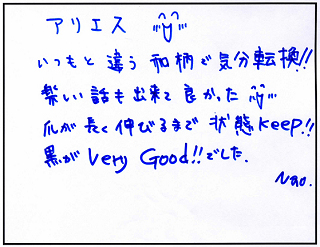 アリエス
いつもと違う和柄で気分転換!!
楽しい話も出来て良かった
爪が長く伸びるまで状態keep!!
黒がVery Good!!でした.
Nao.